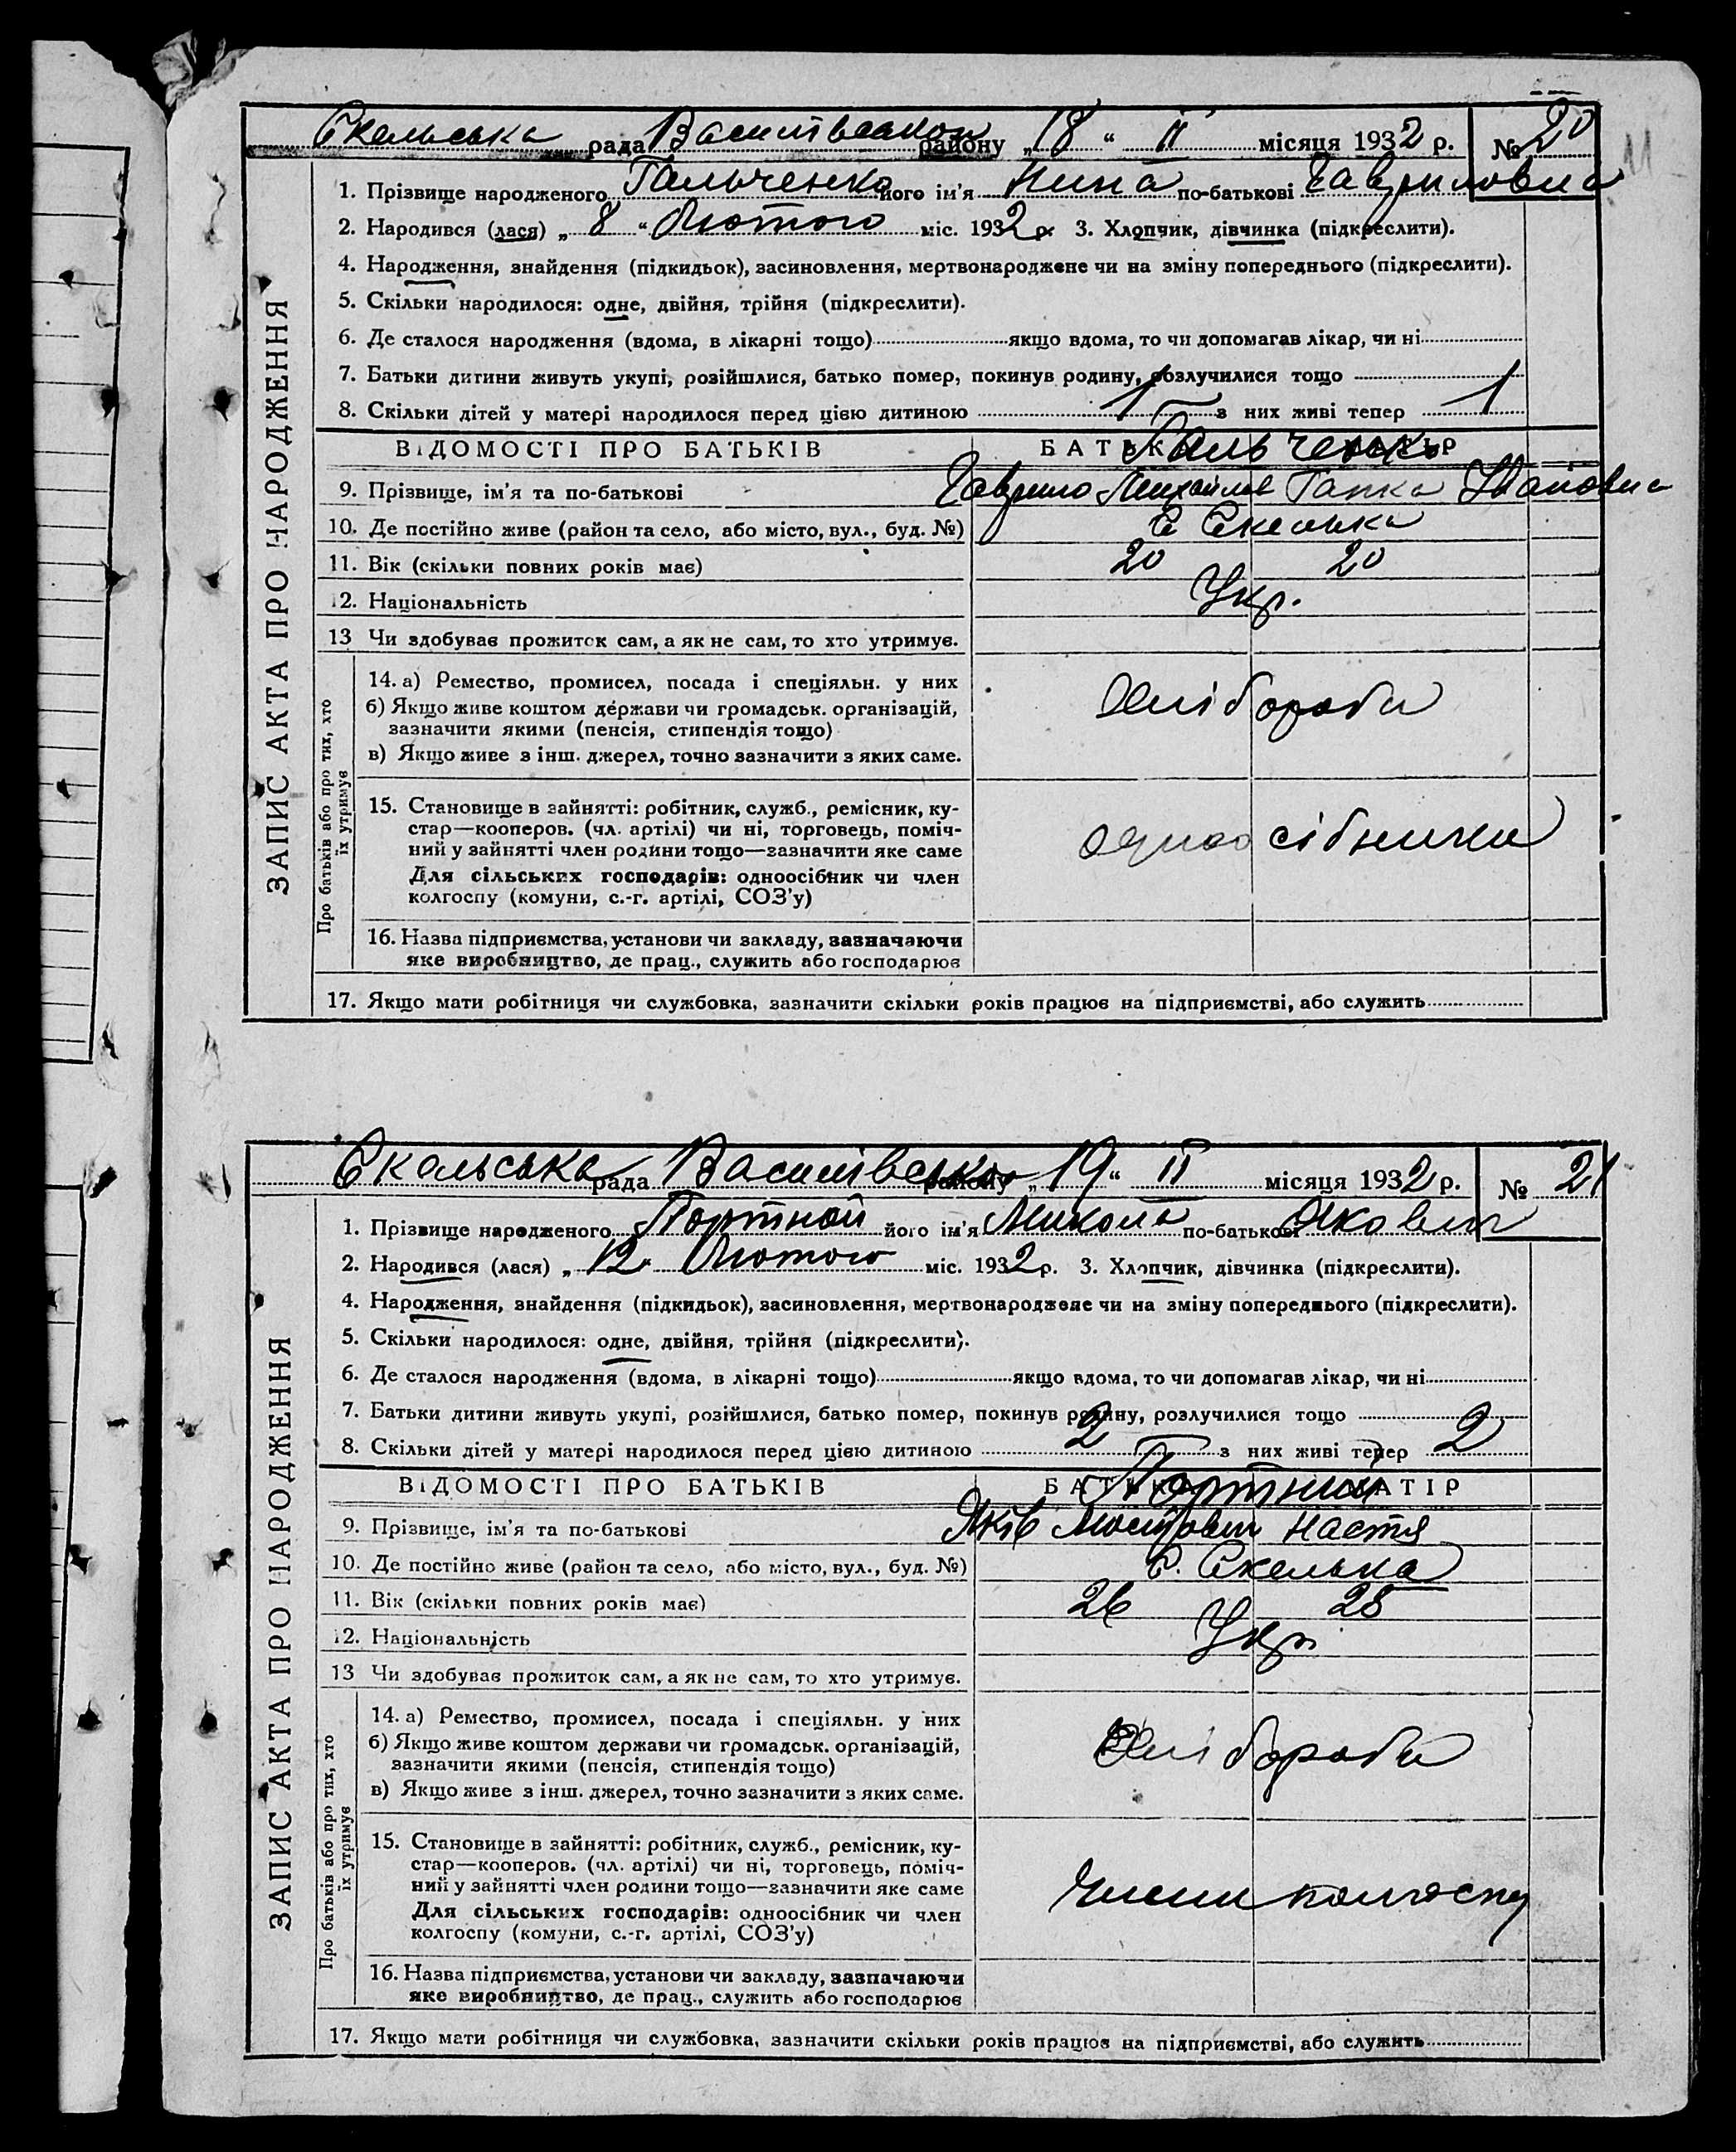 Скельська рада Василівськ району „18“ II місяця 1932 р. № 20
11
1. Прізвище народженого Гальченко його ім'я Нина по-батькові Гавриловна
2. Народився (лася) „8“ Лютого міс. 1932 р. 3. Хлопчик, дівчинка (підкреслити).
4. Народження, знайдення (підкидьок), засиновлення, мертвонароджене чи на зміну попереднього (підкреслити).
5. Скільки народилося: одне, двійня, трійня (підкреслити).
6. Де сталося народження (вдома, в лікарні тощо) якщо вдома, то чи допомагав лікар, чи ні
7. Батьки дитини живуть укупі, розійшлися, батько помер, покинув родину, розлучилися тощо
8. Скільки дітей у матері народилося перед цією дитиною 1 з них живі тепер 1
ВІДОМОСТІ ПРО БАТЬКІВ БАТЬКО МАТІР
Гальченко
9. Прізвище, ім'я та по-батькові Гаврило Михайлов Гапка Ивановна
10. Де постійно живе (район та село, або місто, вул., буд. №) С Скелька
11. Вік (скільки повних років має) 20 20
12. Національність Укр.
13 Чи здобуває прожиток сам, а як не сам, то хто утримує.
14. а) Ремество, промисел, посада і спеціяльн. у них
б) Якщо живе коштом держави чи громадськ. організацій,
зазначити якими (пенсія, стипендія тощо)
в) Якщо живе з інш. джерел, точно зазначити з яких саме.
Хлібороби
15. Становище в зайнятті: робітник, служб., ремісник, ку-
стар—кооперов. (чл. артілі) чи ні, торговець, поміч-
ний у зайнятті член родини тощо—зазначити яке саме
Для сільських господарів: одноосібник чи член
колгоспу (комуни, с.-г. артілі, СОЗ'у)
одноосібники
16. Назва підприємства, установи чи закладу, зазначаючи
яке виробництво, де прац., служить або господарює
17. Якщо мати робітниця чи службовка, зазначити скільки років працює на підприємстві, або служить
ЗАПИС АКТА ПРО НАРОДЖЕННЯ
Про батьків або про тих, хто
їх утримує
Скельська рада Василівсько району „19“ II місяця 1932 р. № 21
1. Прізвище народженого Портной його ім'я Микола по-батькові Якович
2. Народився (лася) „12“ Лютого міс. 1932 р. 3. Хлопчик, дівчинка (підкреслити).
4. Народження, знайдення (підкидьок), засиновлення, мертвонароджене чи на зміну попереднього (підкреслити).
5. Скільки народилося: одне, двійня, трійня (підкреслити).
6. Де сталося народження (вдома, в лікарні тощо) якщо вдома, то чи допомагав лікар, чи ні
7. Батьки дитини живуть укупі, розійшлися, батько помер, покинув родину, розлучилися тощо
8. Скільки дітей у матері народилося перед цією дитиною 2 з них живі тепер 2
ВІДОМОСТІ ПРО БАТЬКІВ БАТЬКО МАТІР
Портний
9. Прізвище, ім'я та по-батькові Яків Настя
10. Де постійно живе (район та село, або місто, вул., буд. №) С. Скелька
11. Вік (скільки повних років має) 26 28
12. Національність Укр.
13 Чи здобуває прожиток сам, а як не сам, то хто утримує.
14. а) Ремество, промисел, посада і спеціяльн. у них
б) Якщо живе коштом держави чи громадськ. організацій,
зазначити якими (пенсія, стипендія тощо)
в) Якщо живе з інш. джерел, точно зазначити з яких саме.
Хлібороби
15. Становище в зайнятті: робітник, служб., ремісник, ку-
стар—кооперов. (чл. артілі) чи ні, торговець, поміч-
ний у зайнятті член родини тощо—зазначити яке саме
Для сільських господарів: одноосібник чи член
колгоспу (комуни, с.-г. артілі, СОЗ'у)
члени колгоспу
16. Назва підприємства, установи чи закладу, зазначаючи
яке виробництво, де прац., служить або господарює
17. Якщо мати робітниця чи службовка, зазначити скільки років працює на підприємстві, або служить
ЗАПИС АКТА ПРО НАРОДЖЕННЯ
Про батьків або про тих, хто
їх утримує